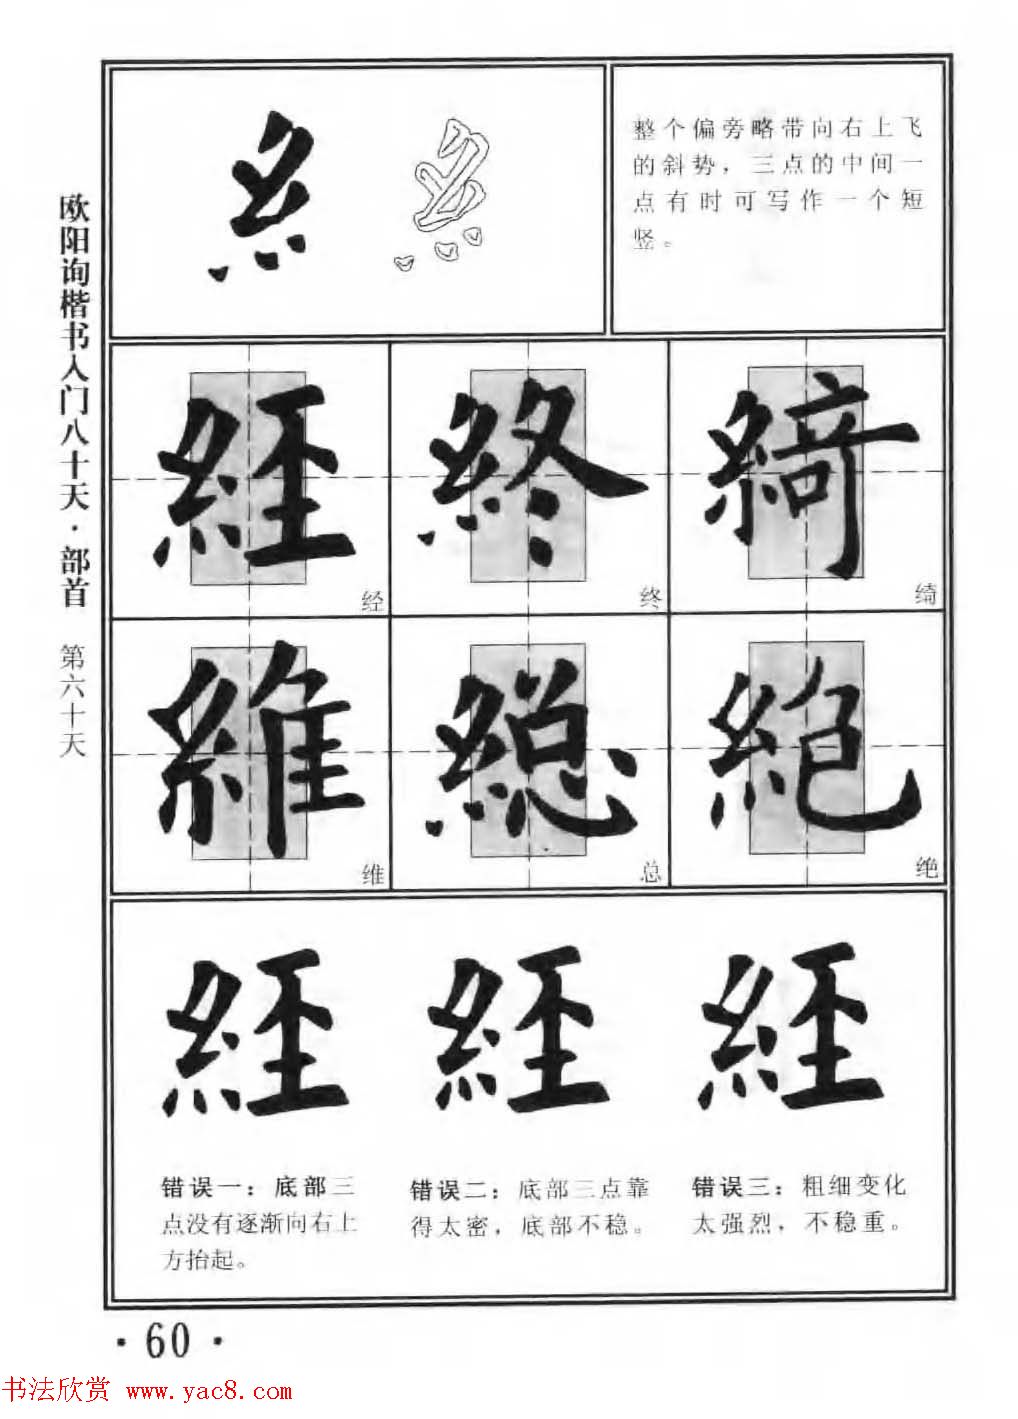 欧阳询楷书入门八十天·部首 第六十天
整个偏旁略带向右上飞
的斜势，三点的中间一
点有时可写作一个短
竖。
糹
經 終 綺
经 终 绮
維 總 絕
维 总 绝
經 經 經
错误一：底部三
点没有逐渐向右上
方抬起。
错误二：底部三点靠
得太密，底部不稳。
错误三：粗细变化
太强烈，不稳重。
·60·
书法欣赏 www.yac8.com